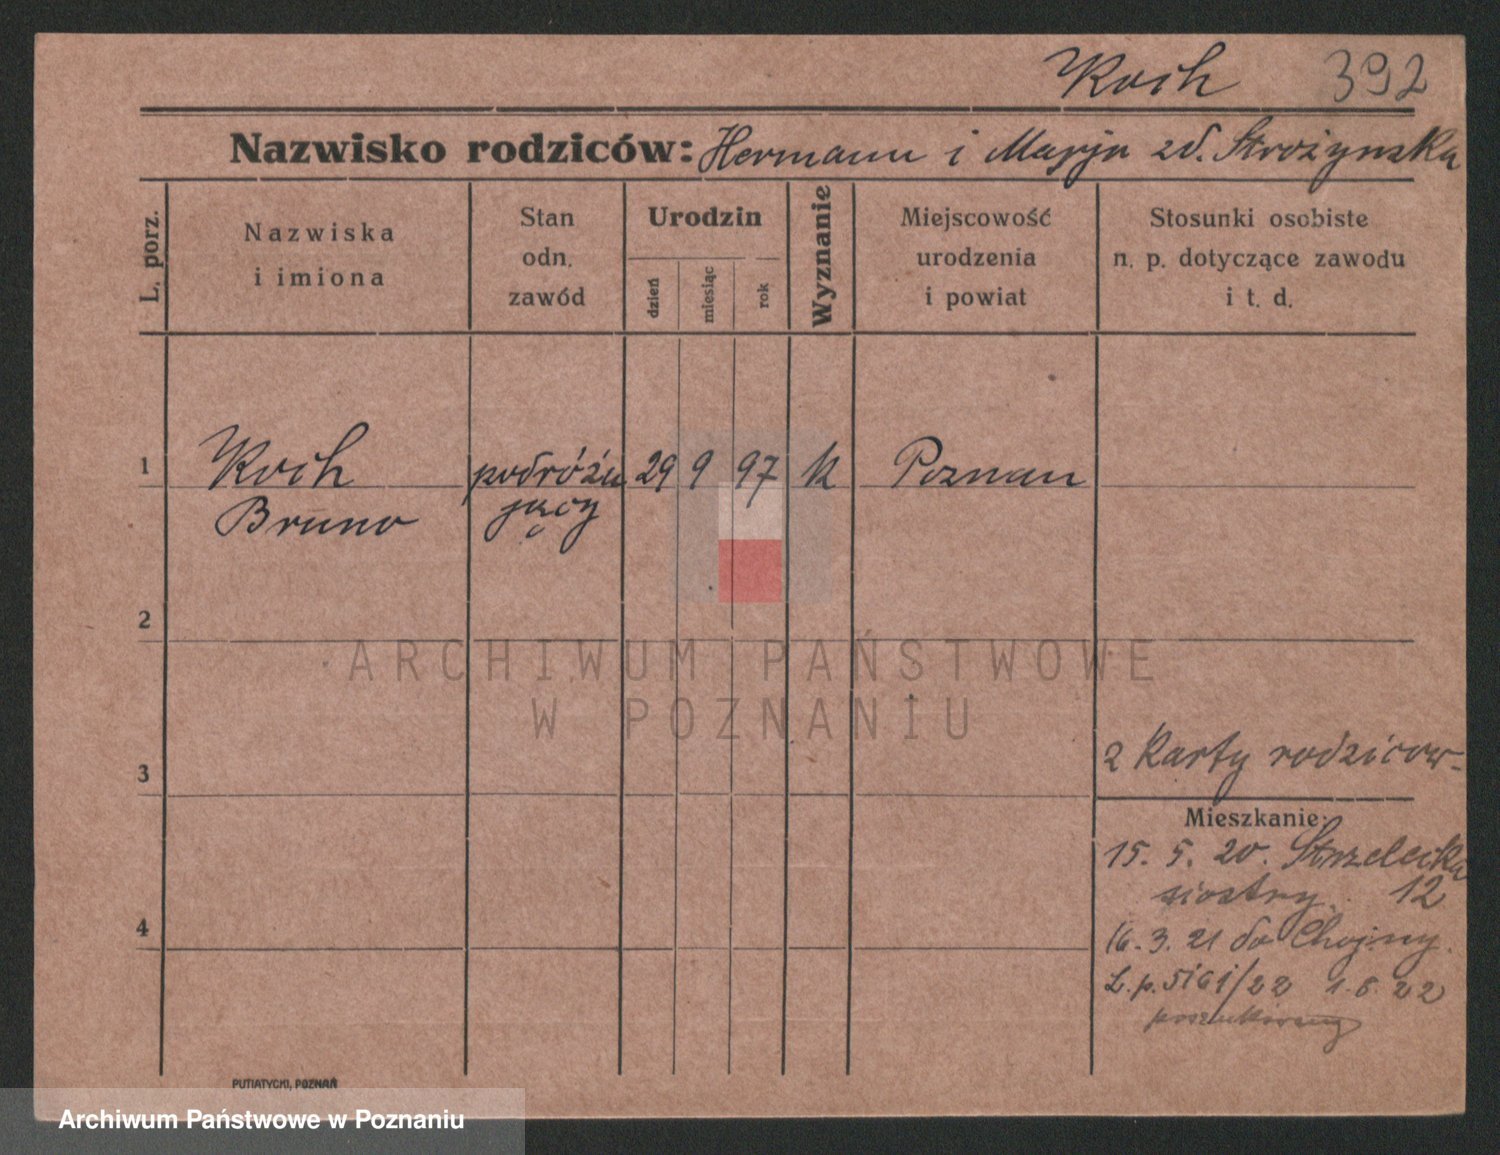 Koch 392
Nazwisko rodziców: Hermann i Marja zd. Strożynska
L. porz.
Nazwiska
i imiona
Stan
odn.
zawód
Urodzin
dzień
miesiąc
rok
Wyznanie
Miejscowość
urodzenia
i powiat
Stosunki osobiste
n. p. dotyczące zawodu
i t. d.
1 Koch podróżu 29 9 97 k Poznan
Bruno jący
2
ARCHIWUM PAŃSTWOWE
W POZNANIU
2 Karty rodzicow
3
Mieszkanie:
15. 5. 20. Strzelecka
siostry 12
4
16. 3. 21 do Chojny.
L. p. 5161/22 1. 6. 22
poszukiwany
PUTIATYCKI, POZNAŃ
Archiwum Państwowe w Poznaniu